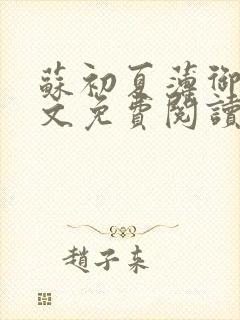 蘇初夏薄御
文免費閱讀
趙子來